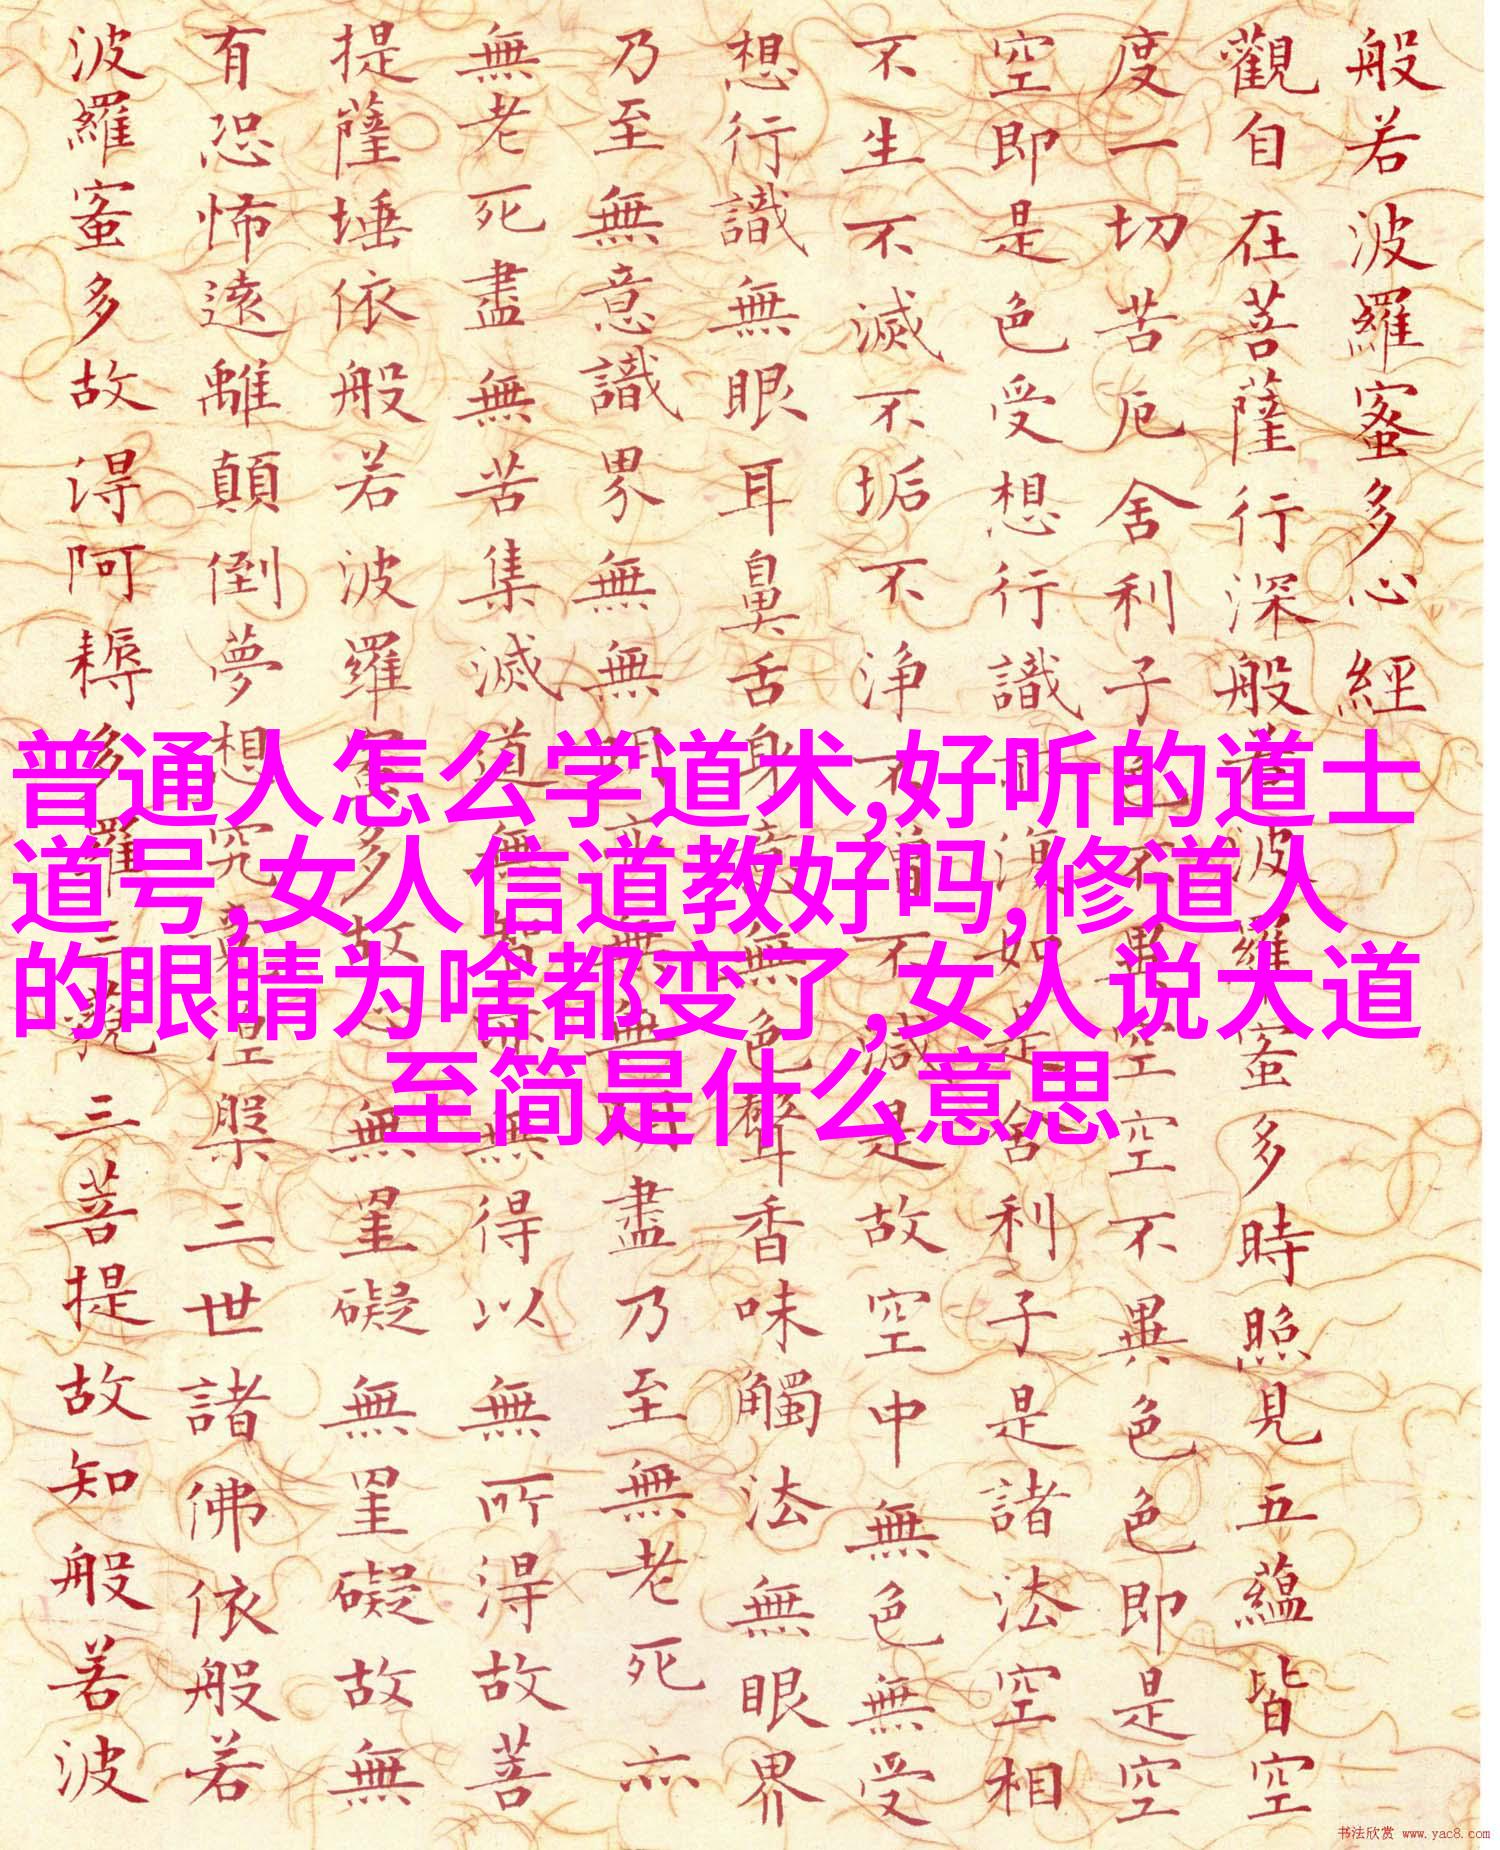 般若波羅蜜多心經
觀自在菩薩行深般若波羅蜜多時照見五蘊皆空
度一切苦厄舍利子色不異空空不異色色即是空
空即是色受想行識亦復如是舍利子是諸法空相
不生不滅不垢不淨不增不減是故空中無色無受
想行識無眼耳鼻舌身意無色聲香味觸法無眼界
乃至無意識界無無明亦無無明盡乃至無老死亦
無老死盡無苦集滅道無智亦無得以無所得故菩
提薩埵依般若波羅蜜多故心無罣礙無罣礙故無
有恐怖遠離顛倒夢想究竟涅槃三世諸佛依般若
波羅蜜多故得阿耨多羅三藐三菩提故知般若波
普通人怎么学道术,好听的道士
道号,女人信道教好吗,修道人
的眼睛为啥都变了,女人说大道
至简是什么意思
书法欣赏 www.yac8.com